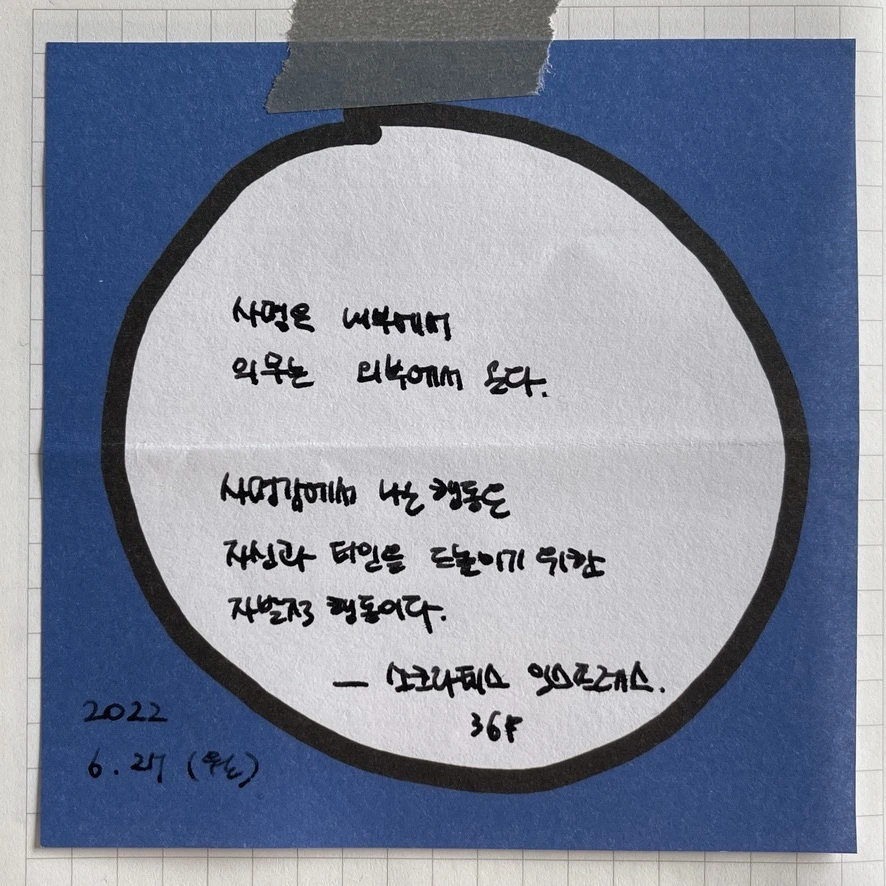 사명은 내부에서
의무는 외부에서 온다.
사명감에서 나는 행동은
자신과 타인을 드높이기 위한
자발적 행동이다.
— 소크라테스 익스프레스.
36P
2022
6.27 (월)